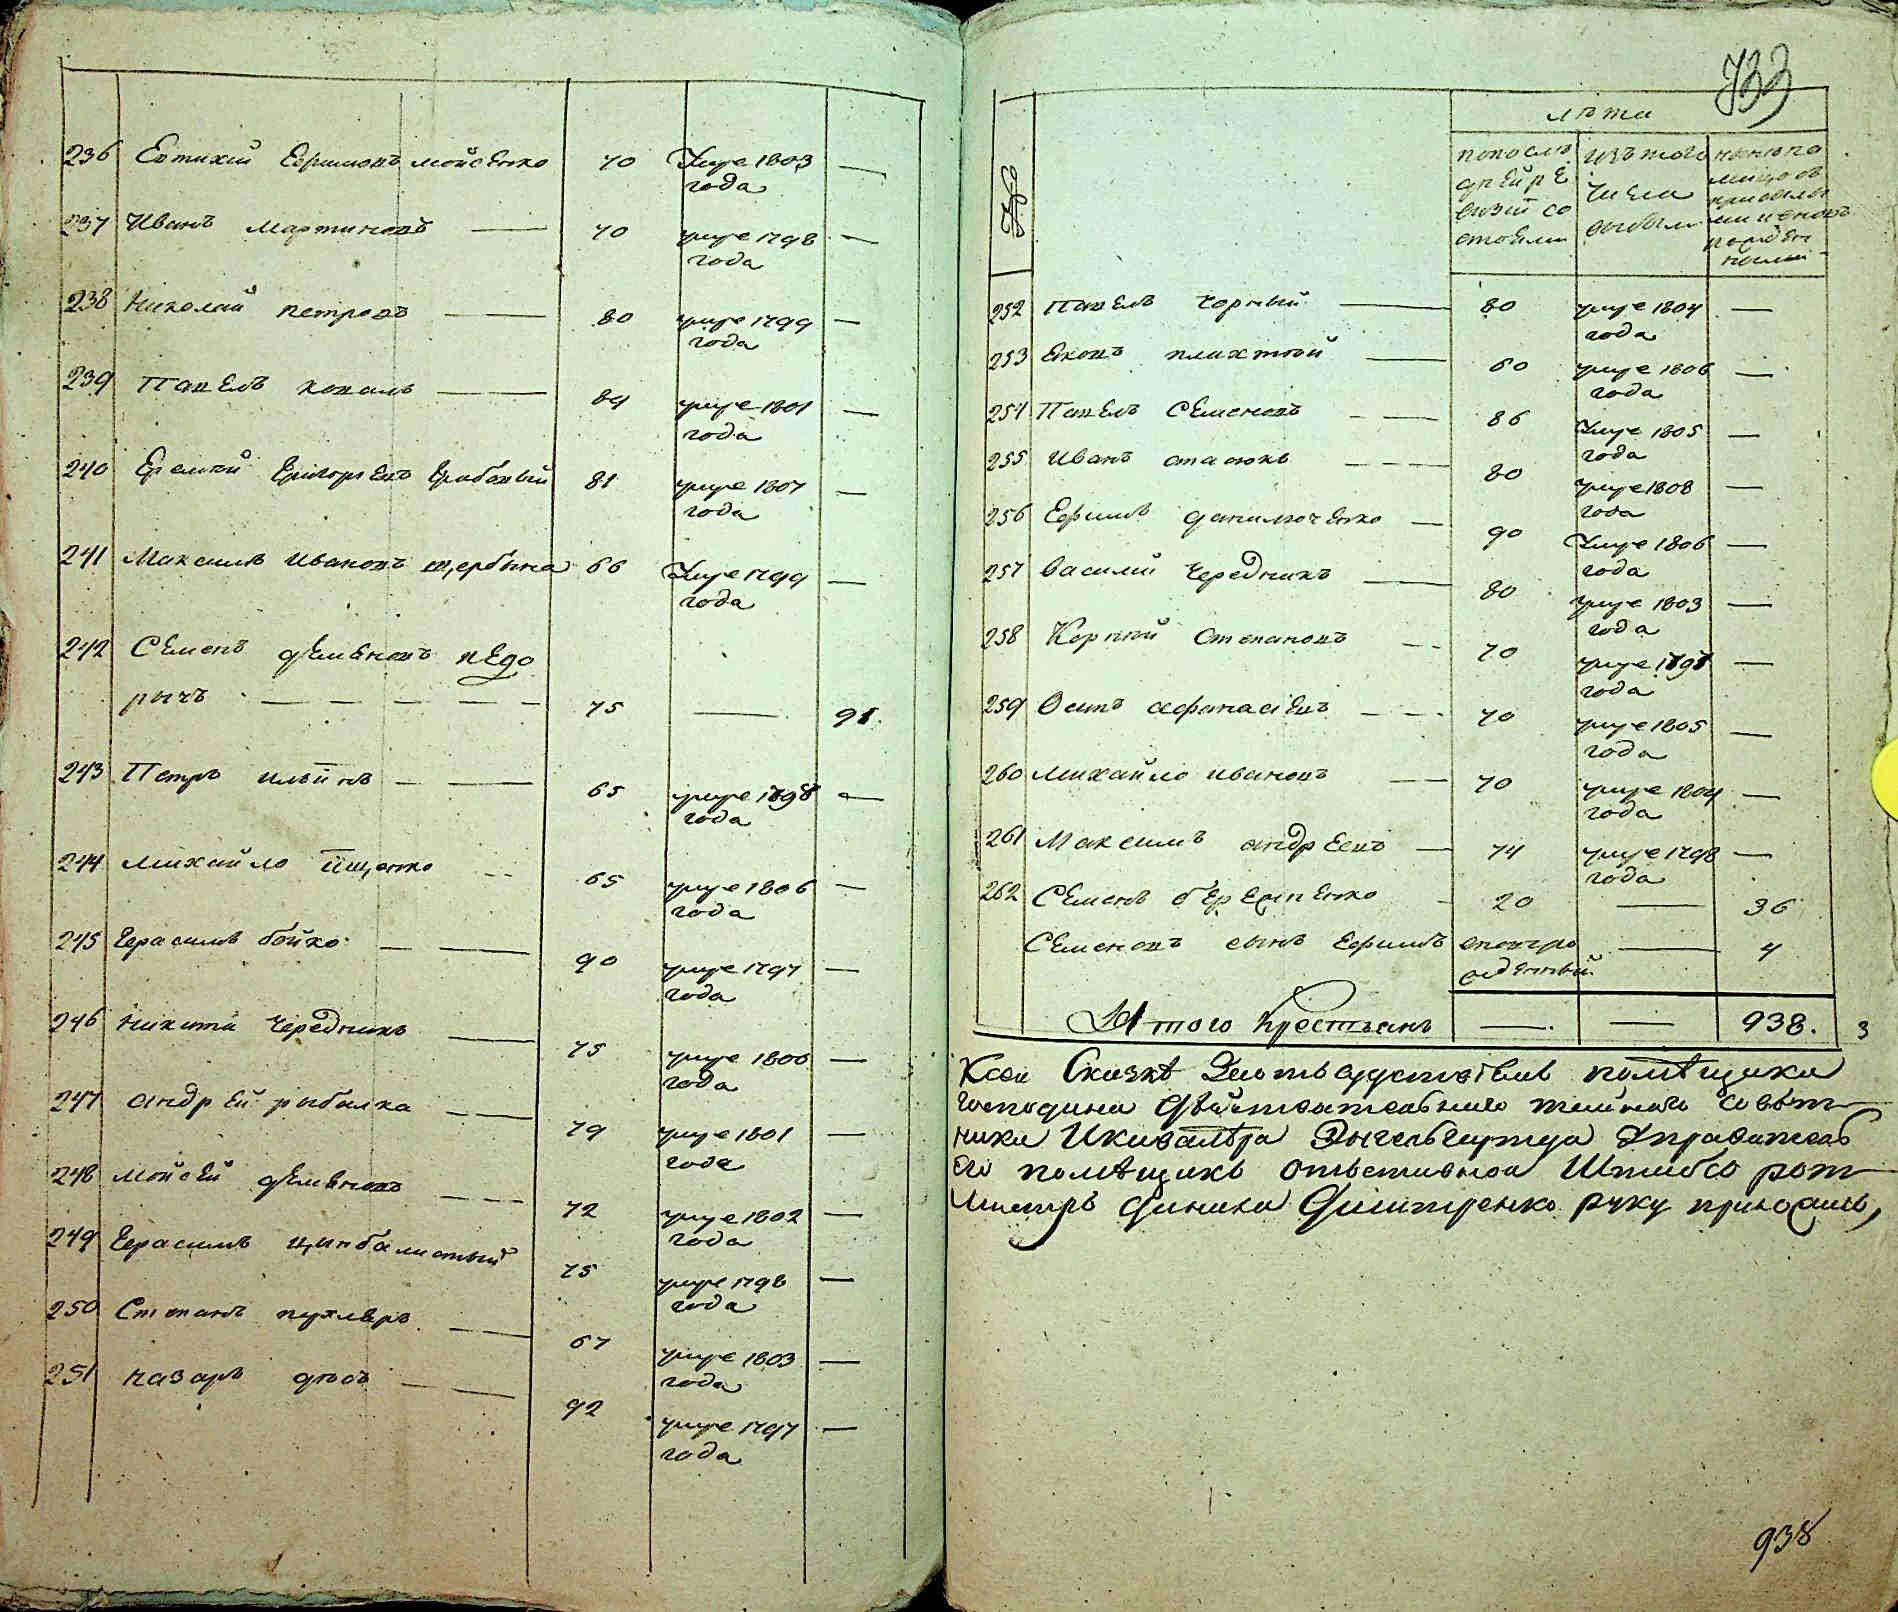 236 Евтихий Ефимовъ мойсѣнко 70 Умре 1803
года —
237 Иванъ мартиновъ — 70 умре 1798
года —
238 Николай петровъ — 80 умре 1799
года —
239 Павелъ коваль — 84 умре 1801
года —
240 Еремий Григорьевъ Грабовый 81 умре 1807
года —
241 Максимъ Ивановъ щербина 66 Умре 1799
года —
242 Семенъ демяновъ недо
рычъ — 75 — 91.
243 Петръ ильинъ — 65 умре 1798
года —
244 михайло ищенко — 65 умре 1806
года —
245 Герасимъ бойко — 90 умре 1797
года —
246 никита Чередникъ — 75 умре 1800
года —
247 андрей рыбалка — 79 умре 1801
года —
248 мойсей демяновъ — 72 умре 1802
года —
249 Герасимъ цынбалистый 75 умре 1798
года —
250 Степанъ — 67 умре 1803
года —
251 назаръ — 92 умре 1797
года —
733
лѣта
попослѣ
дней ре
визии со
стояли
изъ того
числа
выбыли
ныне на
лицо съ
прибылы
ми и вновь
рожден
ными
252 Павелъ Чорный — 80 умре 1804
года —
253 Яковъ плахтий — 60 умре 1806
года —
254 Павелъ Семеновъ — 86 Умре 1805
года —
255 Иванъ стасюкъ — 80 умре 1808
года —
256 Ефимъ данилюченко — 90 Умре 1806
года —
257 василий Чередникъ — 80 умре 1803
года —
258 Корний Степановъ — 70 умре 1797
года —
259 Осипъ афанасиевъ — 70 умре 1805
года —
260 михайло ивановъ — 70 умре 1804
года —
261 Максимъ андреевъ — 74 умре 1798
года —
262 Семенъ — 20 — 36
Семеновъ сынъ Ефимъ вновьро
жденный. — 4
Итого Крестьянъ — — 938. 3
Ксей Сказкѣ помѣщика
господина действительнаго тайнаго совѣт
ника Икавалера Энгельгартда Управитель
его помѣщикъ Штабсъ рот
мистръ Дмитренко руку приложилъ,
938